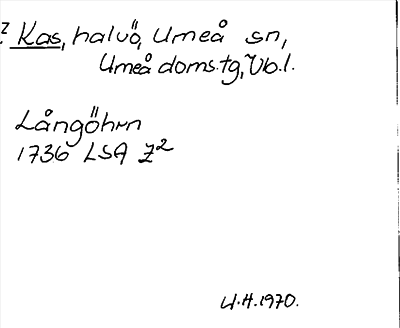 Z Kas, halvö, Umeå sn,
Umeå doms.tg, Vb.l.
Långöhrn
1736 LSA Z²
U.H. 1970.